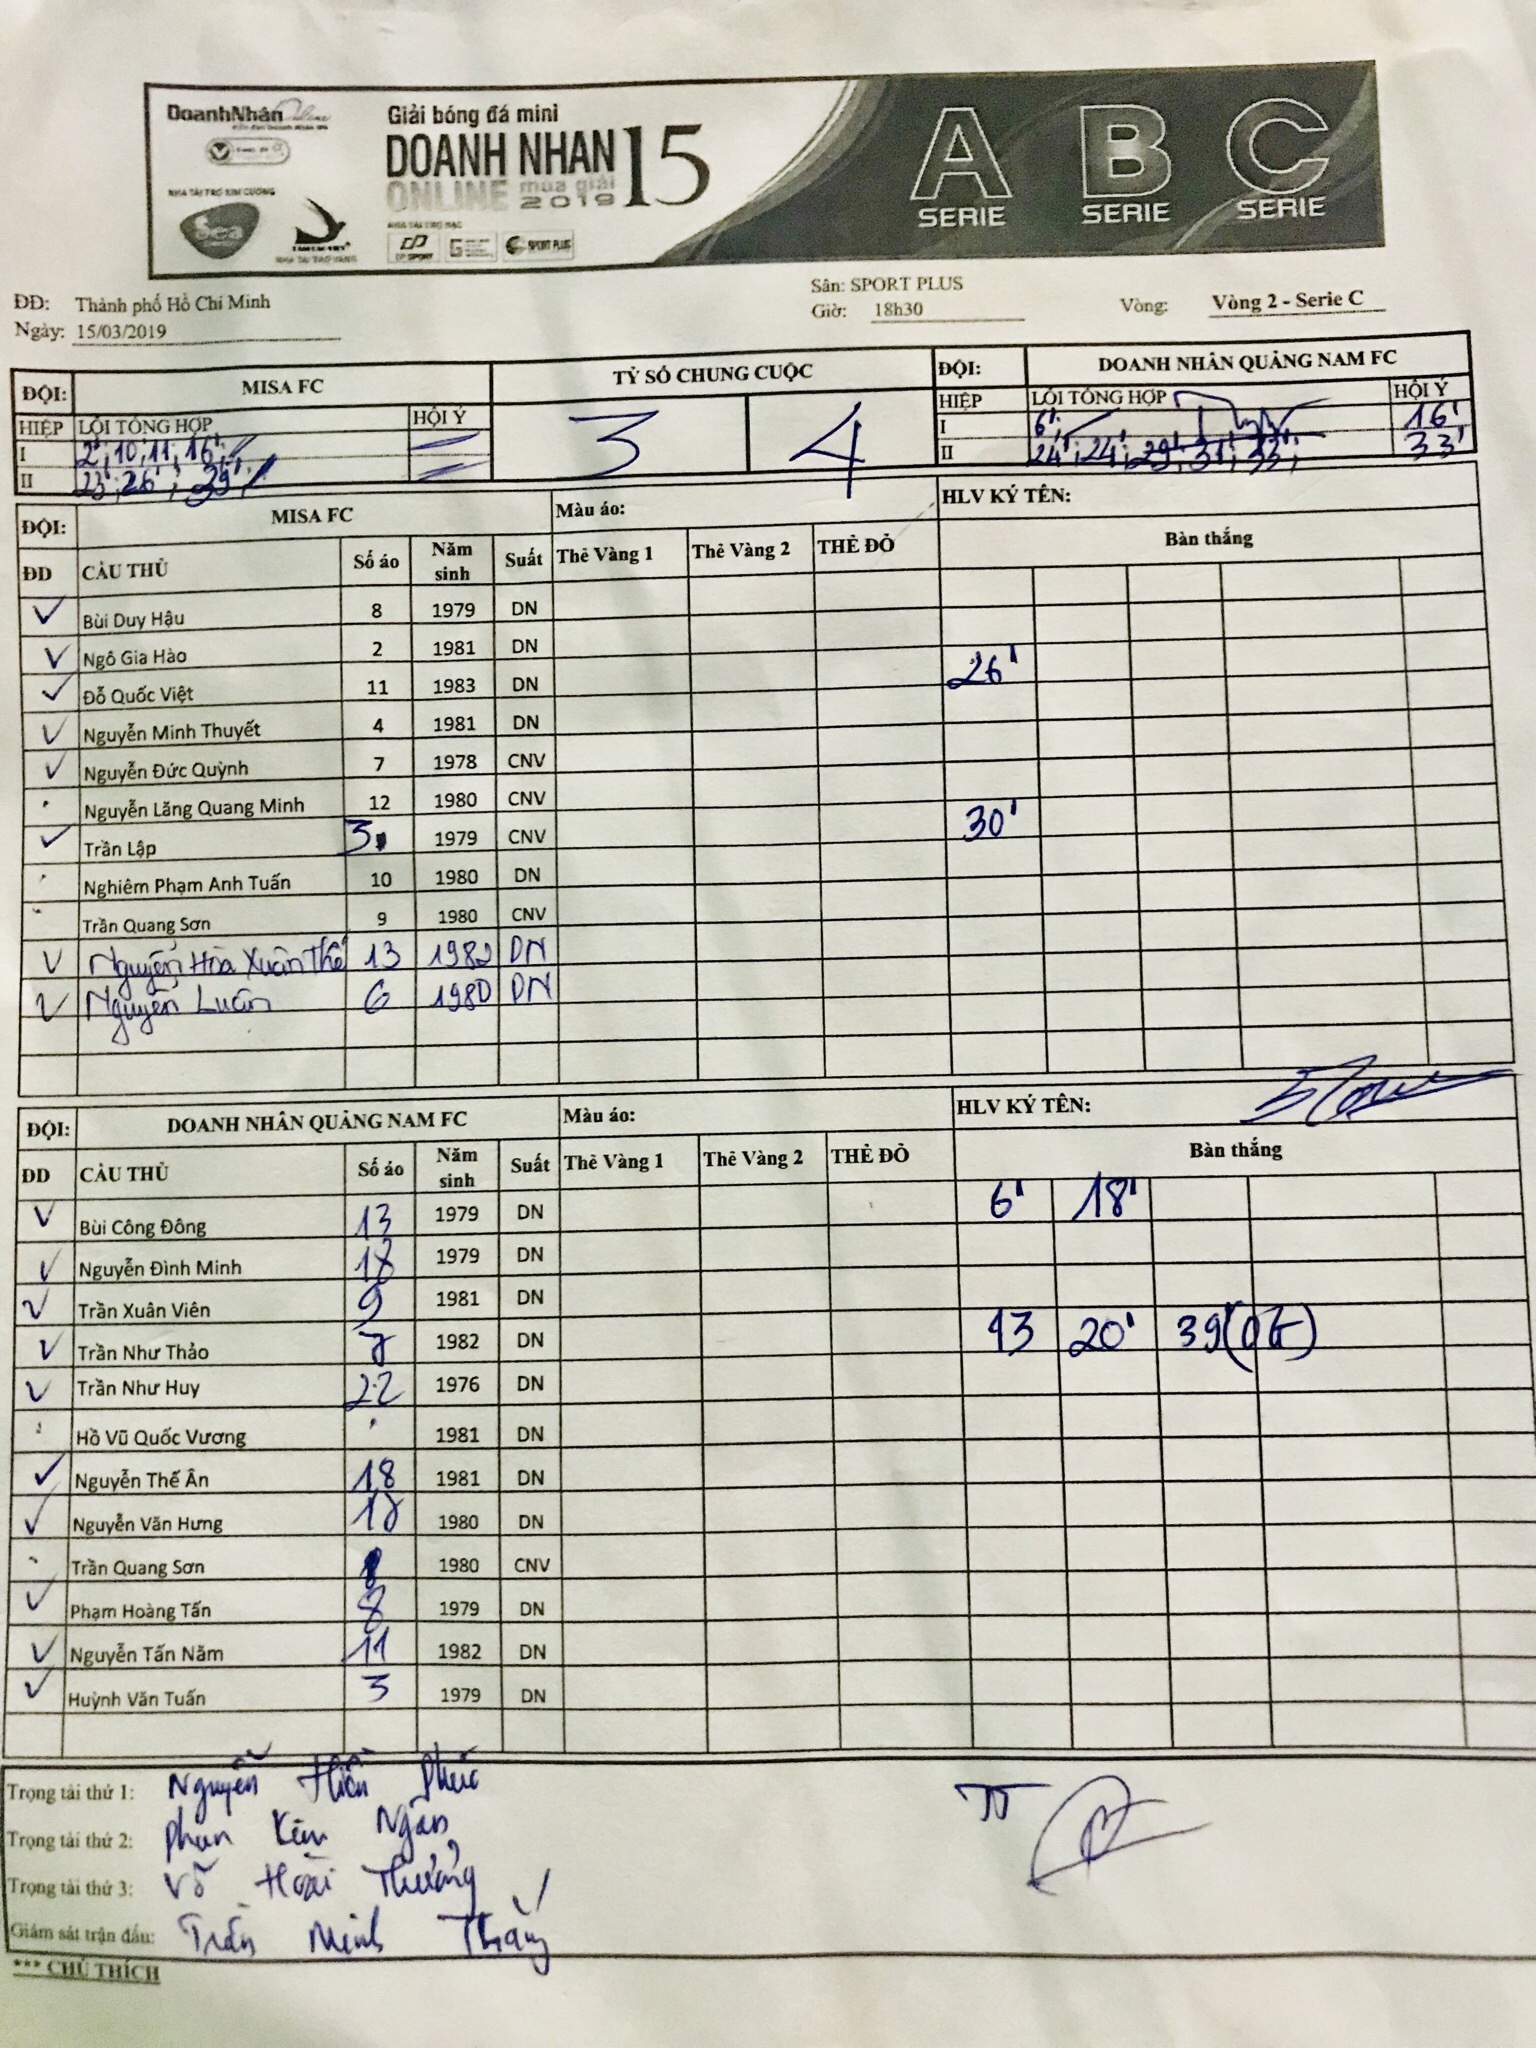 DoanhNhân Online
Giải bóng đá mini
DOANH NHAN 15
ONLINE mùa giải 2019
NHÀ TÀI TRỢ KIM CƯƠNG
Sea
NHÀ TÀI TRỢ VÀNG
NHÀ TÀI TRỢ BẠC
DP SPORT
SPORT PLUS
A B C
SERIE SERIE SERIE
ĐĐ: Thành phố Hồ Chí Minh Sân: SPORT PLUS
Ngày: 15/03/2019 Giờ: 18h30 Vòng: Vòng 2 - Serie C
ĐỘI: MISA FC TỶ SỐ CHUNG CUỘC ĐỘI: DOANH NHÂN QUẢNG NAM FC
HIỆP LỖI TỔNG HỢP HỘI Ý 3 4 HIỆP LỖI TỔNG HỢP HỘI Ý
I 2'; 10'; 11'; 16'; I 6'; 16'
II 23'; 26'; 39'; II 24'; 24'; 29'; 31'; 33'; 33'
ĐỘI: MISA FC Màu áo: HLV KÝ TÊN:
ĐD CẦU THỦ Số áo Năm sinh Suất Thẻ Vàng 1 Thẻ Vàng 2 THẺ ĐỎ Bàn thắng
Bùi Duy Hậu 8 1979 DN
Ngô Gia Hào 2 1981 DN
Đỗ Quốc Việt 11 1983 DN 26'
Nguyễn Minh Thuyết 4 1981 DN
Nguyễn Đức Quỳnh 7 1978 CNV
Nguyễn Lăng Quang Minh 12 1980 CNV
Trần Lập 3 1979 CNV 30'
Nghiêm Phạm Anh Tuấn 10 1980 DN
Trần Quang Sơn 9 1980 CNV
Nguyễn Hòa Xuân Thế 13 1982 DN
Nguyễn Luân 6 1980 DN
ĐỘI: DOANH NHÂN QUẢNG NAM FC Màu áo: HLV KÝ TÊN:
ĐD CẦU THỦ Số áo Năm sinh Suất Thẻ Vàng 1 Thẻ Vàng 2 THẺ ĐỎ Bàn thắng
Bùi Công Đông 13 1979 DN 6' 18'
Nguyễn Đình Minh 18 1979 DN
Trần Xuân Viên 9 1981 DN
Trần Như Thảo 7 1982 DN 13 20' 39(
Trần Như Huy 22 1976 DN
Hồ Vũ Quốc Vương 1981 DN
Nguyễn Thế Ân 18 1981 DN
Nguyễn Văn Hưng 1980 DN
Trần Quang Sơn 1980 CNV
Phạm Hoàng Tấn 8 1979 DN
Nguyễn Tấn Năm 11 1982 DN
Huỳnh Văn Tuấn 3 1979 DN
Trọng tài thứ 1: Nguyễn Hiền Phúc
Trọng tài thứ 2: Phan Kim Ngân
Trọng tài thứ 3: Võ Hoài Thưởng
Giám sát trận đấu: Trần Minh Thắng
TT
*** CHÚ THÍCH